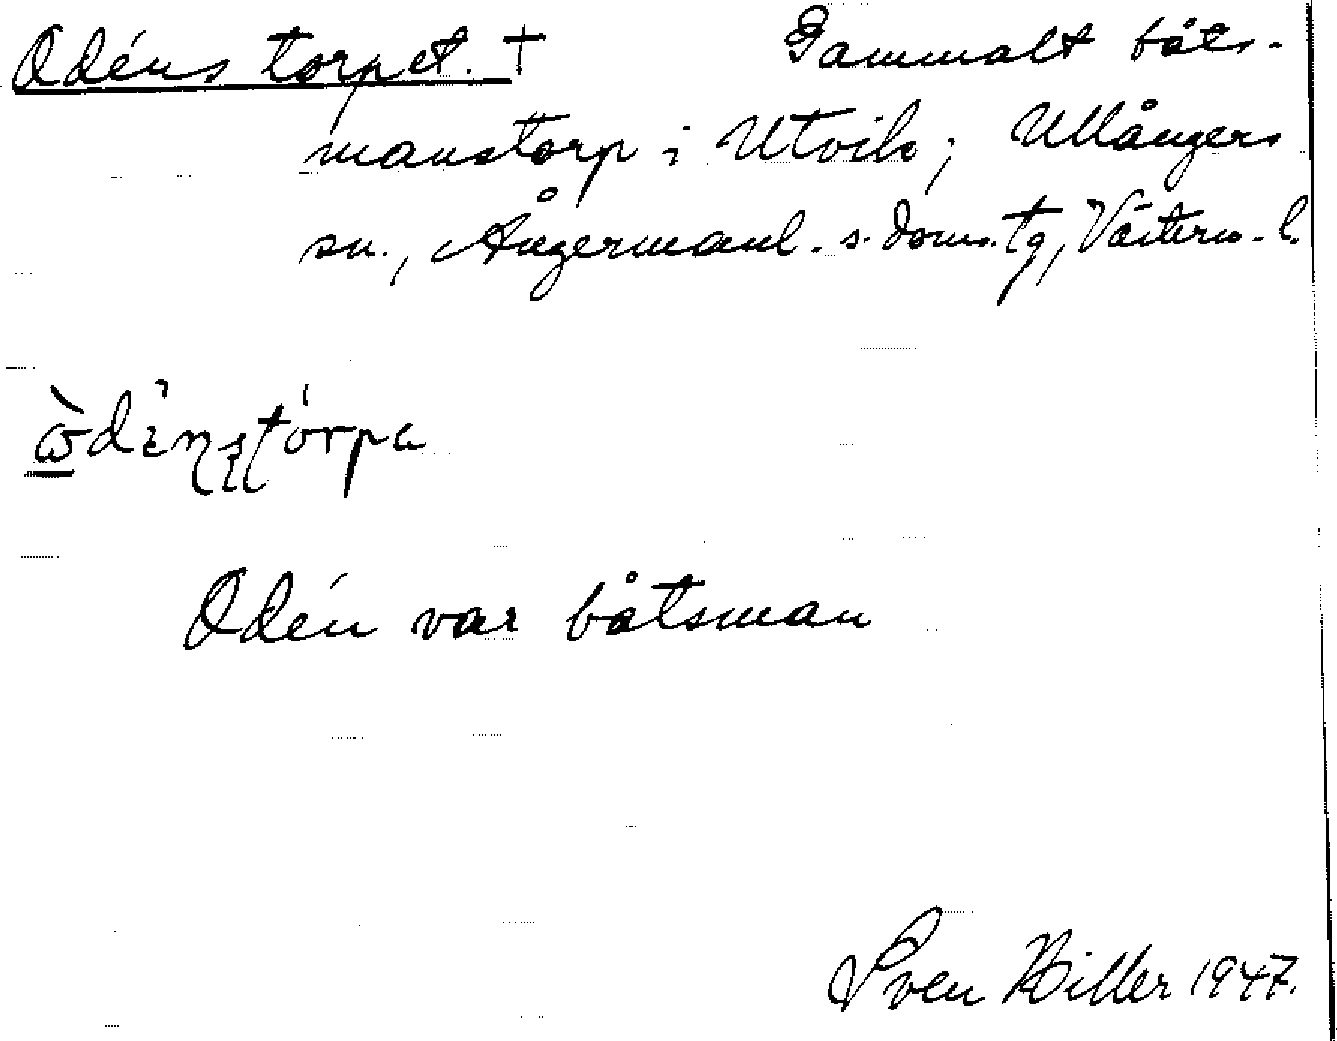 Odéns torpet. † Gammalt båts-
manstorp i Utvik; Ullångers
sn., Ångermanl. s. doms. tg, Västern. l.
Odén var båtsman
Sven Hiller 1947.